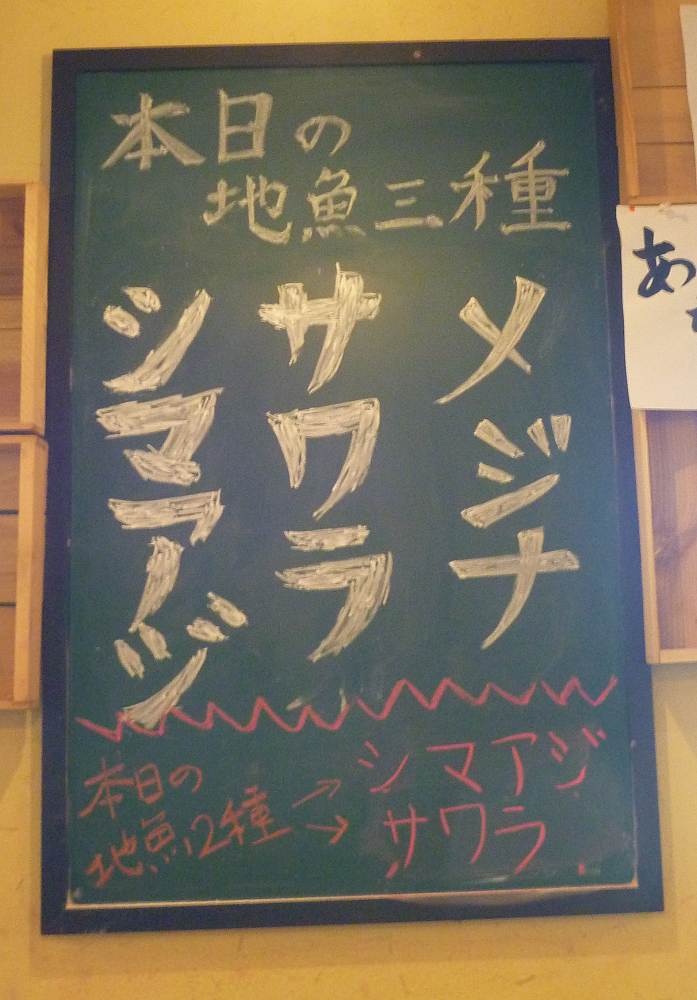 本日の
地魚三種
メジナ
サワラ
シマアジ
本日の
地魚2種
→シマアジ
→サワラ
あ